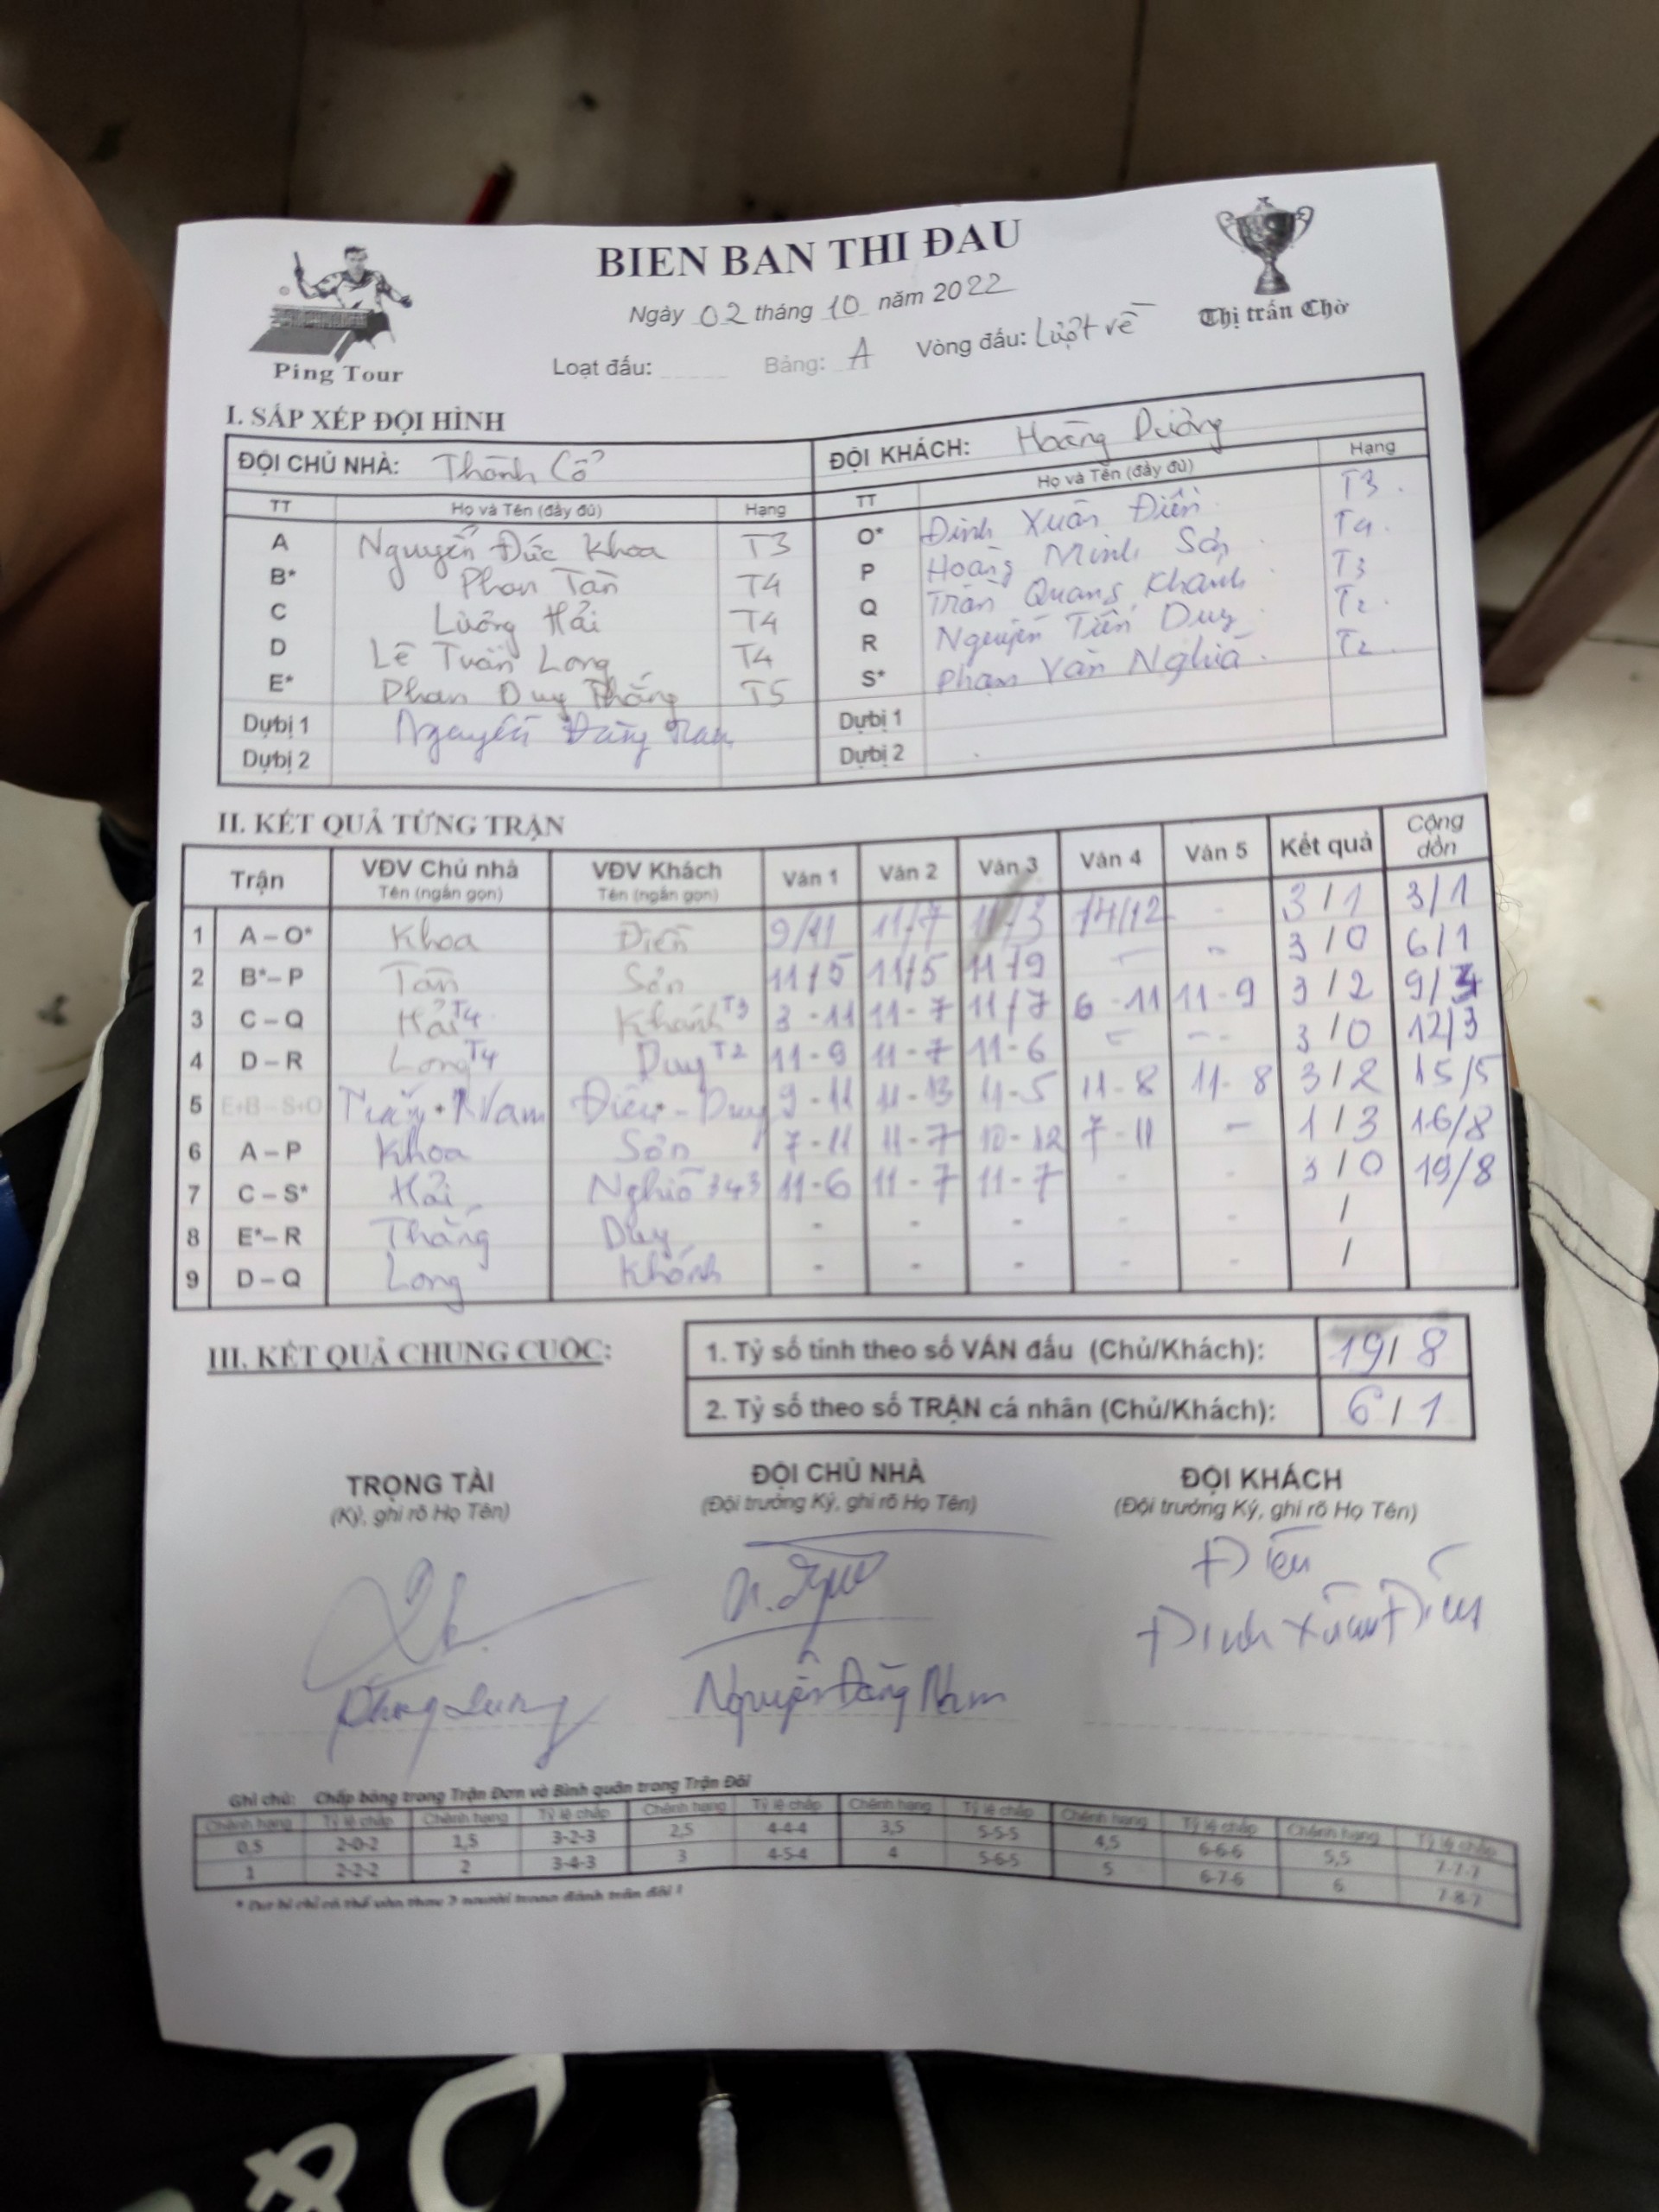 BIEN BAN THI ĐAU
Ngày 02 tháng 10 năm 2022
Ping Tour
Thị trấn Chờ
Loạt đấu: Bảng: A Vòng đấu: Lượt về
I. SẮP XẾP ĐỘI HÌNH
ĐỘI CHỦ NHÀ: Thành Cổ ĐỘI KHÁCH: Hoàng Dương
TT Họ và Tên (đầy đủ) Hạng TT Họ và Tên (đầy đủ) Hạng
A Nguyễn Đức Khoa T3 O* Đinh Xuân Điền T3
B* Phan Tân T4 P Hoàng Minh Sơn T4
C Lương Hải T4 Q Trần Quang Khánh T3
D Lê Tuấn Long T4 R Nguyễn Tiến Duy T2
E* Phan Duy Thắng T5 S* Phạm Văn Nghĩa T2
Dựbị 1 Nguyễn Đăng Nam Dựbị 1
Dựbị 2 Dựbị 2
II. KẾT QUẢ TỪNG TRẬN
Trận VĐV Chủ nhà Tên (ngắn gọn) VĐV Khách Tên (ngắn gọn) Ván 1 Ván 2 Ván 3 Ván 4 Ván 5 Kết quả Cộng dồn
1 A – O* Khoa Điền 9/11 11/7 11/3 14/12 - 3/1 3/1
2 B*– P Tân Sơn 11/5 11/5 11/9 - - 3/0 6/1
3 C – Q Hải T4 Khánh T3 3-11 11-7 11/7 6-11 11-9 3/2 9/3
4 D – R Long T4 Duy T2 11-9 11-7 11-6 - - 3/0 12/3
5 E+B – S+O + Nam Điền - Duy 9-11 11-13 11-5 11-8 11-8 3/2 15/5
6 A – P Khoa Sơn 7-11 11-7 10-12 7-11 - 1/3 16/8
7 C – S* Hải Nghĩa 343 11-6 11-7 11-7 - - 3/0 19/8
8 E*– R Thắng Duy - - - - - /
9 D – Q Long Khánh - - - - - /
III. KẾT QUẢ CHUNG CUỘC:
1. Tỷ số tính theo số VÁN đấu (Chủ/Khách): 19/8
2. Tỷ số theo số TRẬN cá nhân (Chủ/Khách): 6/1
TRỌNG TÀI ĐỘI CHỦ NHÀ ĐỘI KHÁCH
(Ký, ghi rõ Họ Tên) (Đội trưởng Ký, ghi rõ Họ Tên) (Đội trưởng Ký, ghi rõ Họ Tên)
Điền
Đinh Xuân Điền
Nguyễn Đăng Nam
Ghi chú: Chấp bóng trong Trận Đơn và Bình quân trong Trận Đôi
Chênh hạng Tỷ lệ chấp Chênh hạng Tỷ lệ chấp Chênh hạng Tỷ lệ chấp Chênh hạng Tỷ lệ chấp Chênh hạng Tỷ lệ chấp Chênh hạng Tỷ lệ chấp
0,5 2-0-2 1,5 3-2-3 2,5 4-4-4 3,5 5-5-5 4,5 6-6-6 5,5 7-7-7
1 2-2-2 2 3-4-3 3 4-5-4 4 5-6-5 5 6-7-6 6 7-8-7
* Dự bị chỉ có thể vào thay 2 người trong đánh trận đôi !